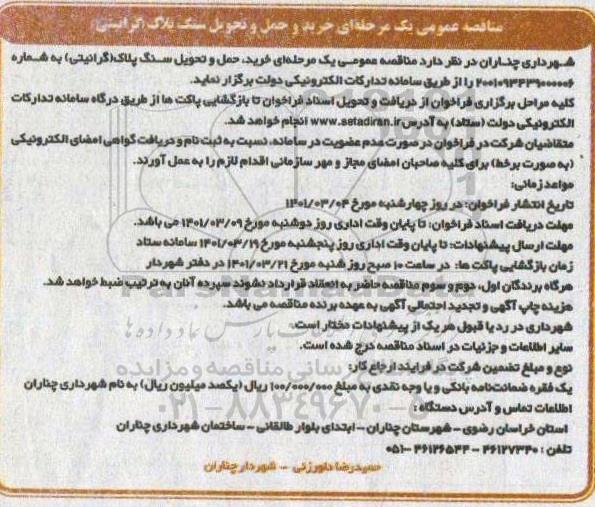 مناقصه عمومی یک مرحله‌ای خرید و حمل و تحویل سنگ پلاک (گرانیتی)
شهرداری چناران در نظر دارد مناقصه عمومی یک مرحله‌ای خرید، حمل و تحویل سنگ پلاک(گرانیتی) به شماره
۲۰۰۱۰۹۳۴۳۹۰۰۰۰۰۶ را از طریق سامانه تدارکات الکترونیکی دولت برگزار نماید.
کلیه مراحل برگزاری فراخوان از دریافت و تحویل اسناد فراخوان تا بازگشایی پاکت ها از طریق درگاه سامانه تدارکات
الکترونیکی دولت (ستاد) به آدرس www.setadiran.ir انجام خواهد شد.
متقاضیان شرکت در فراخوان در صورت عدم عضویت در سامانه، نسبت به ثبت نام و دریافت گواهی امضای الکترونیکی
(به صورت برخط) برای کلیه صاحبان امضای مجاز و مهر سازمانی اقدام لازم را به عمل آورند.
مواعد زمانی:
تاریخ انتشار فراخوان: در روز چهارشنبه مورخ ۱۴۰۱/۰۳/۰۴
مهلت دریافت اسناد فراخوان: تا پایان وقت اداری روز دوشنبه مورخ ۱۴۰۱/۰۳/۰۹ می باشد.
مهلت ارسال پیشنهادات: تا پایان وقت اداری روز پنجشنبه مورخ ۱۴۰۱/۰۳/۱۹ سامانه ستاد
زمان بازگشایی پاکت ها: در ساعت ۱۰ صبح روز شنبه مورخ ۱۴۰۱/۰۳/۲۱ در دفتر شهردار
هرگاه برندگان اول، دوم و سوم مناقصه حاضر به انعقاد قرارداد نشوند سپرده آنان به ترتیب ضبط خواهد شد.
هزینه چاپ آگهی و تجدید احتمالی آگهی به عهده برنده مناقصه می باشد.
شهرداری در رد یا قبول هر یک از پیشنهادات مختار است.
سایر اطلاعات و جزئیات در اسناد مناقصه درج شده است.
نوع و مبلغ تضمین شرکت در فرایند ارجاع کار:
یک فقره ضمانت‌نامه بانکی و یا وجه نقدی به مبلغ ۱۰۰/۰۰۰/۰۰۰ ریال (یکصد میلیون ریال) به نام شهرداری چناران
اطلاعات تماس و آدرس دستگاه:
استان خراسان رضوی - شهرستان چناران - ابتدای بلوار طالقانی - ساختمان شهرداری چناران
تلفن: ۴۶۱۲۷۳۴۰ - ۴۶۱۲۶۵۴۴ -۰۵۱
حمیدرضا داورزنی - شهردار چناران
ParsNamadData
۰۲۱-۸۸۳۴۹۶۷۰-۵